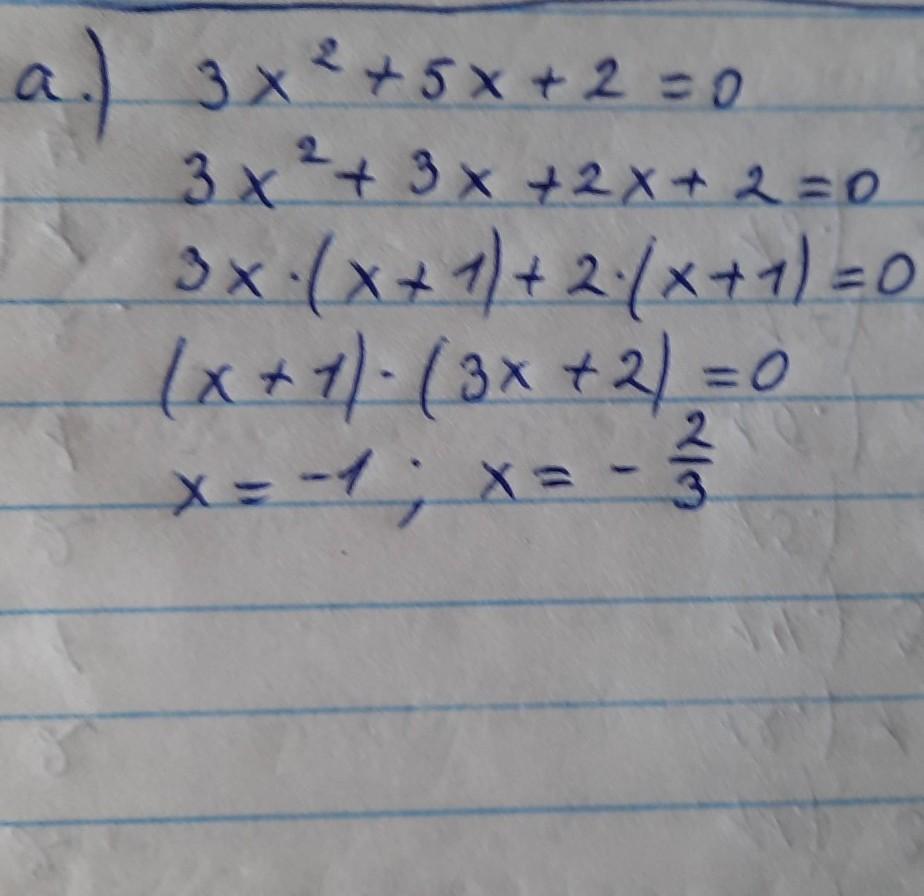 a.) 3x² + 5x + 2 = 0
3x² + 3x + 2x + 2 = 0
3x·(x+1) + 2·(x+1) = 0
(x+1)·(3x+2) = 0
x = -1 ; x = - 2/3